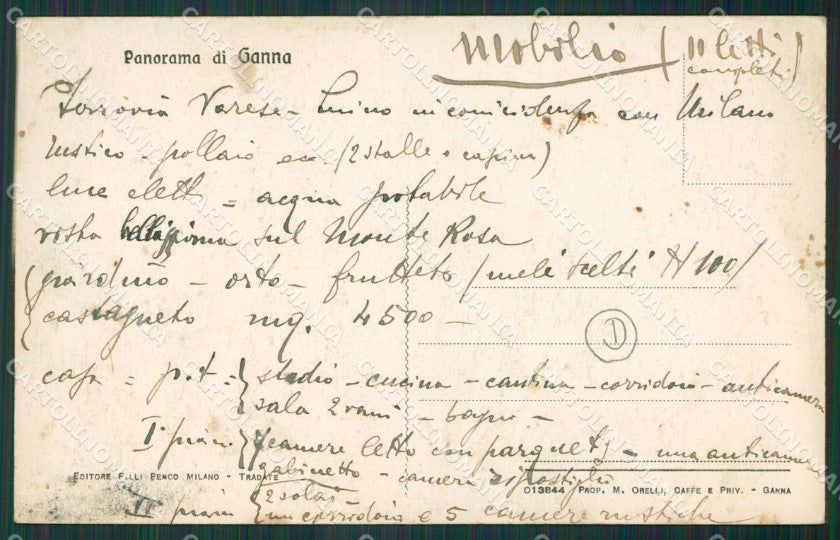 Panorama di Ganna
Mobilio (11 letti
completi)
Ferrovia Varese - Luino in coincidenza con Milano
rustico - pollaio ecc (2 stalle e capina)
luce elett = acqua potabile
vista bellissima sul Monte Rosa
giardino - orto - frutteto / meli scelti N 100 /
castagneto mq. 4500 -
D
casa = p.t = studio - cucina - cantina - corridoio - anticamera
sala 2 vani - bagno -
I° piano 7 camere letto con parquets - una anticamera
gabinetto - camera ripostiglio
EDITORE F.LLI PENCO MILANO - TRADATE
013844 PROP. M. ORELLI, CAFFE E PRIV. - GANNA
II piano 2 solai -
un corridoio e 5 camere rustiche
CARTOLINOMANIA